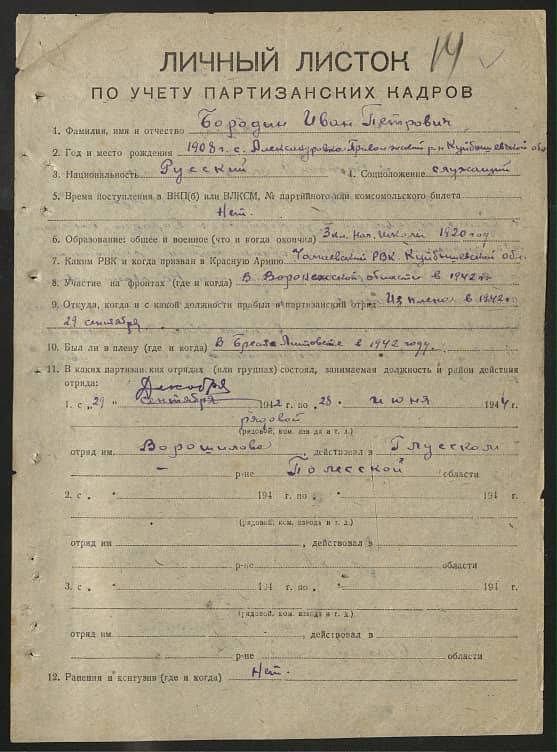 14
ЛИЧНЫЙ ЛИСТОК
ПО УЧЕТУ ПАРТИЗАНСКИХ КАДРОВ
1. Фамилия, имя и отчество Бородин Иван Петрович
2. Год и место рождения 1908 г. с. Александровка Приволжский р-н Куйбышевской об.
3. Национальность Русский 4. Соцположение служащий
5. Время поступления в ВКП(б) или ВЛКСМ, № партийного или комсомольского билета
Нет.
6. Образование: общее и военное (что и когда окончил) 3 кл. нач. школы 1920 году
7. Каким РВК и когда призван в Красную Армию РВК Куйбышевской обл.
8. Участие на фронтах (где и когда) В Воронежской области в 1942 г.
9. Откуда, когда и с какой должности прибыл в партизанский отряд Из плена в 1942 г.
29 сентября
10. Был ли в плену (где и когда) В Брест Литовске в 1942 году.
11. В каких партизанских отрядах (или группах) состоял, занимаемая должность и район действия
отряда: Декабря
1. с „29" сентября 1942 г. по „28" июня 1944 г.
рядовой
(рядовой, ком. взвода и т. д.)
отряд им. Ворошилова, действовал в Глусском
— р-не Полесской области
2. с „ " 194 г. по „ " 194 г.
(рядовой, ком. взвода и т. д.)
отряд им , действовал в
р-не области
3. с „ " 194 г. по „ " 194 г.
(рядовой, ком. взвода и т. д.)
отряд им , действовал в
р-не области
12. Ранения и контузии (где и когда) Нет.